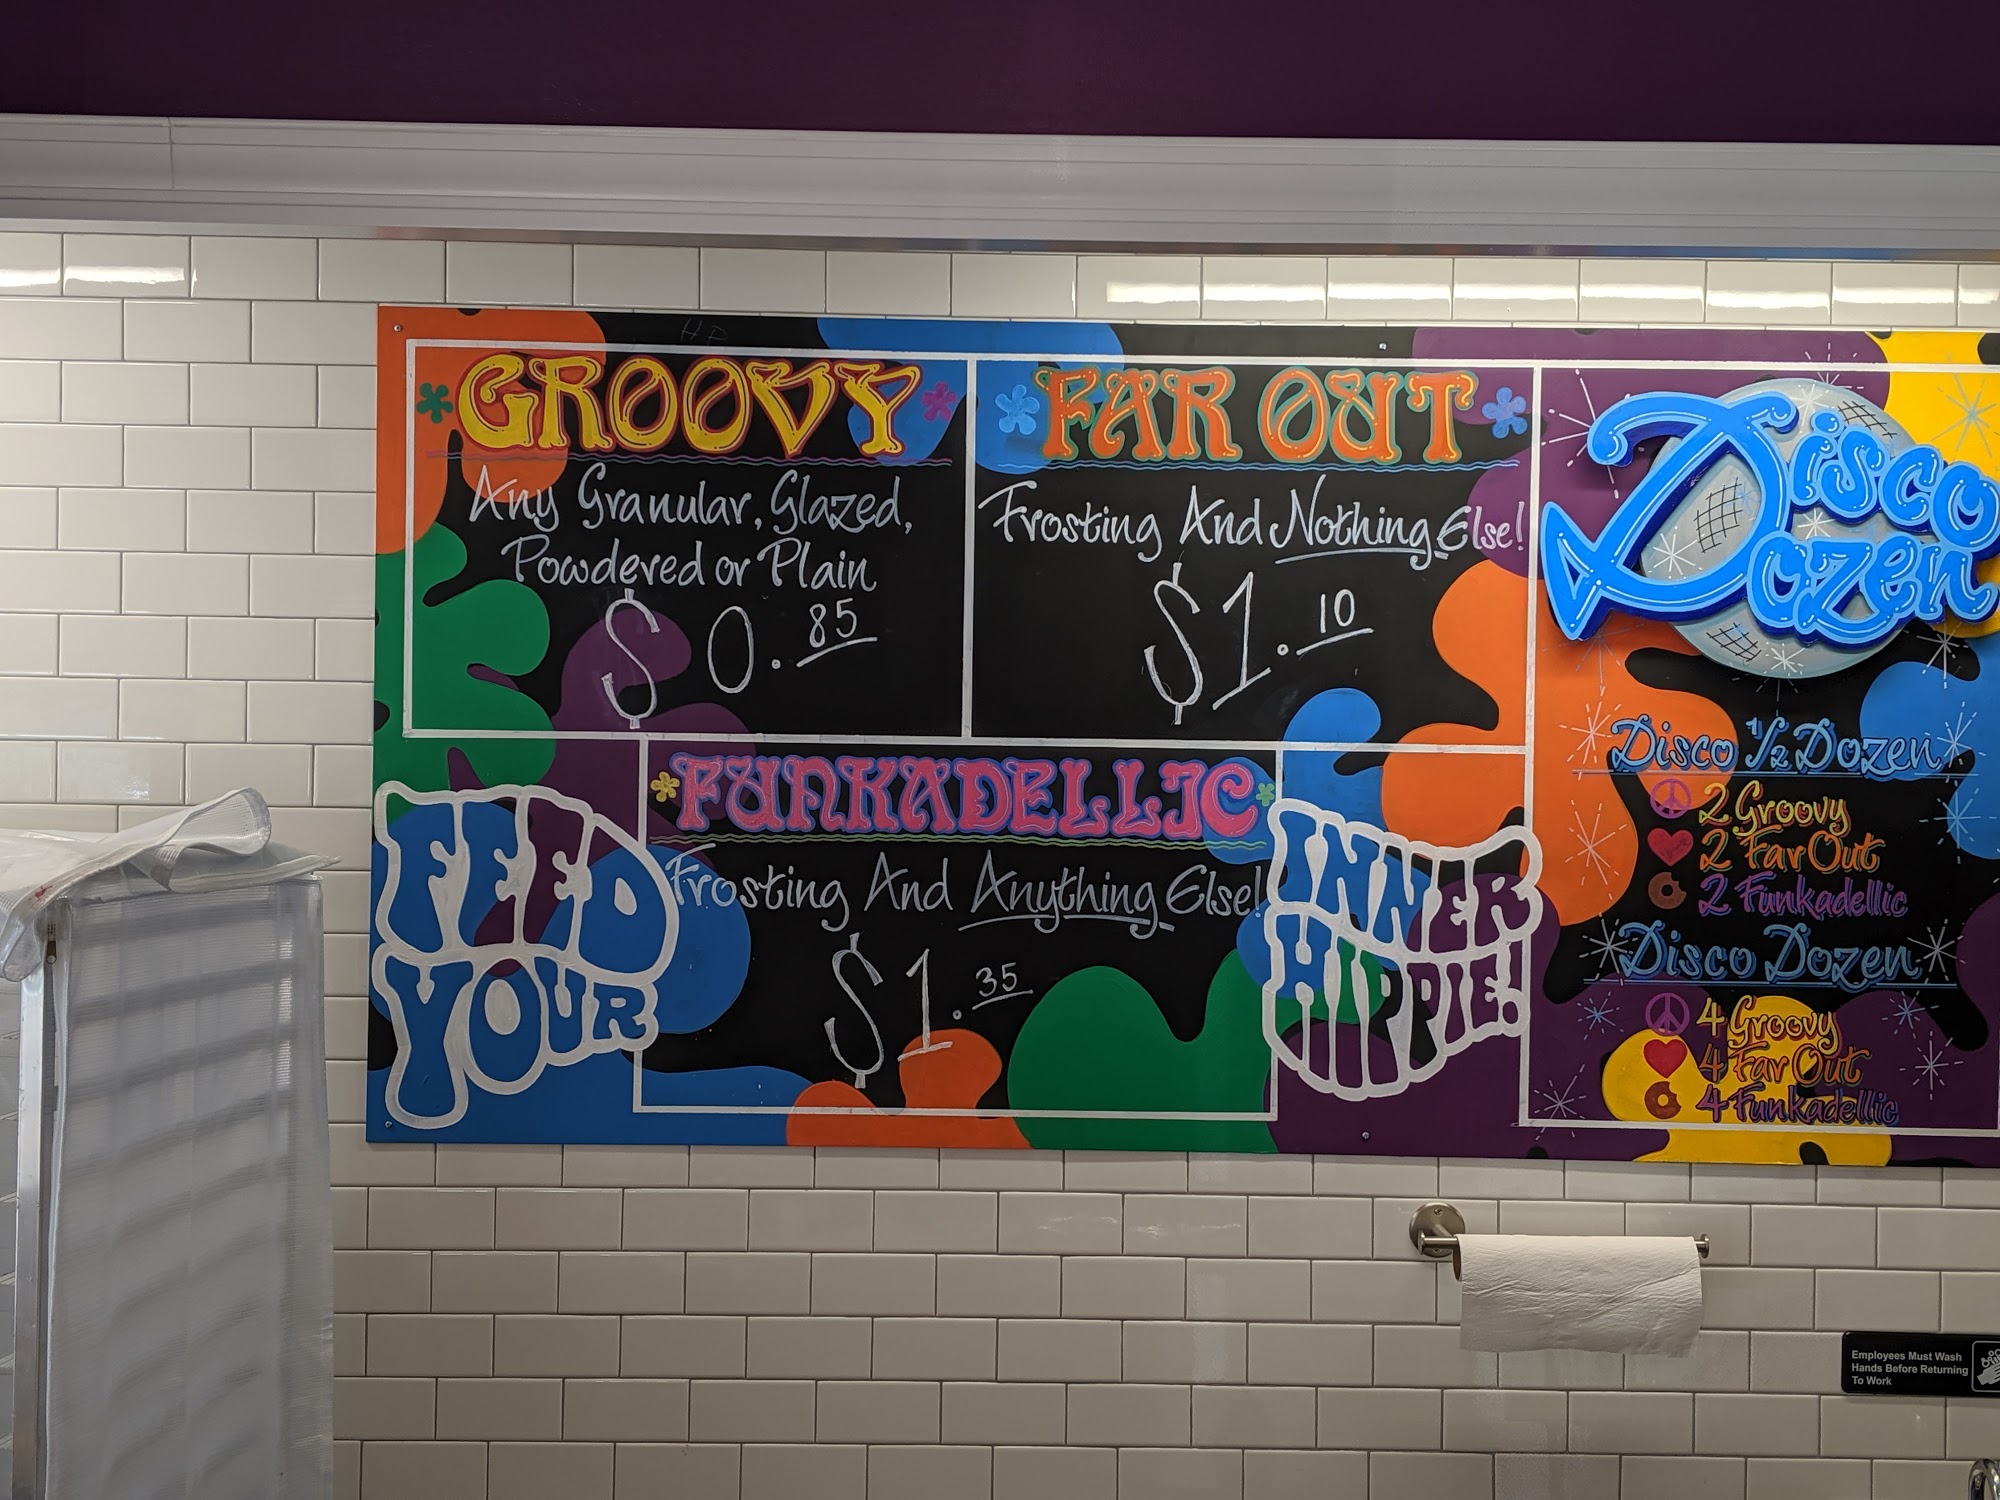 GROOVY
Any Granular, Glazed,
Powdered or Plain
$0.85
FAR OUT
Frosting And Nothing Else!
$1.10
FUNKADELLIC
Frosting And Anything Else!
$1.35
FEED
YOUR
INNER
HIPPIE!
Disco
Dozen
Disco 1/2 Dozen
2 Groovy
2 Far Out
2 Funkadellic
Disco Dozen
4 Groovy
4 Far Out
4 Funkadellic
Employees Must Wash
Hands Before Returning
To Work